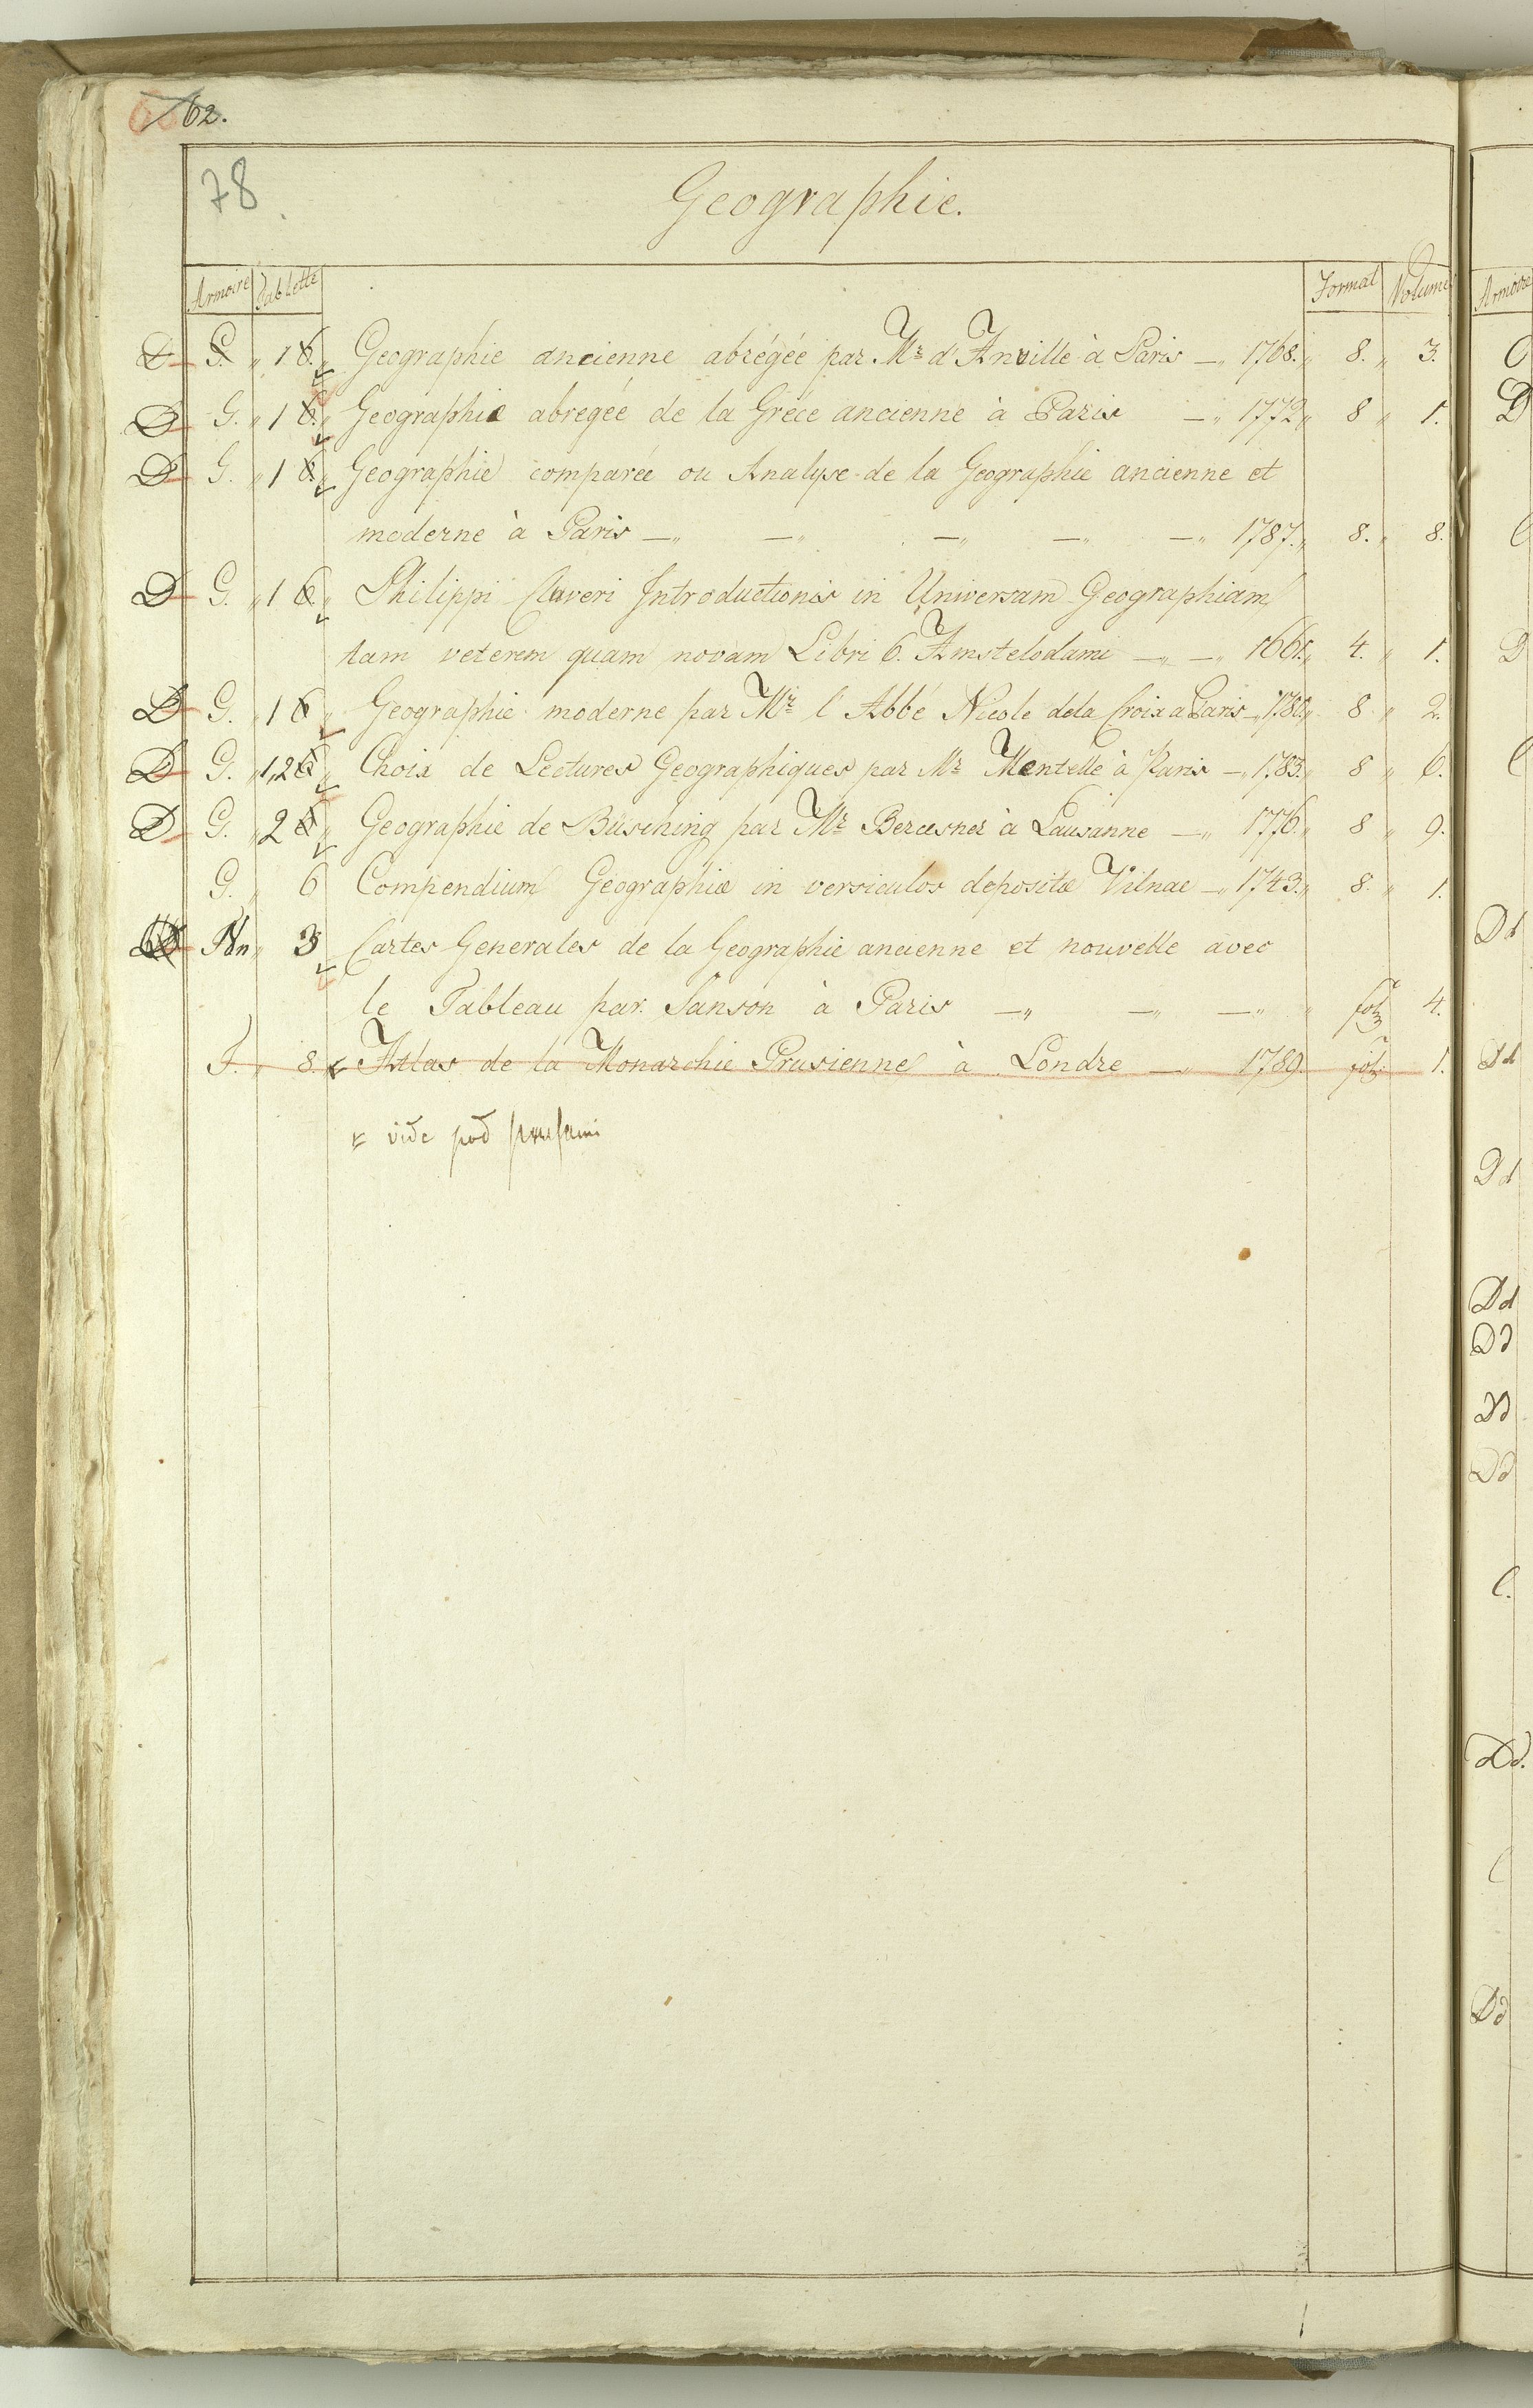 62.
78
Geographie.
Armoire Tablette Format Volume
D G. " 16. " Geographie ancienne abrégée par Mr d'Anville à Paris —" 1768." 8. " 3.
D G. " 16. " Geographie abregée de la Gréce ancienne à Paris —" 1772" 8 " 1.
D G. " 16 " Geographie comparée ou Analyse de la Geographie ancienne et
moderne à Paris —" —" —" —" —" 1787." 8. " 8.
D G. " 16. " Philippi Cluveri Introductionis in Universam Geographiam
tam veterem quam novam Libri 6. Amstelodami —" —" 1661." 4. " 1.
D G. " 16 " Geographie moderne par Mr l'Abbé Nicole dela Croix a Paris —" 1780" 8 " 2.
D G. " 1,26 " Choix de Lectures Geographiques par Mr Mentelle à Paris —" 1783." 8 " 6.
D G. " 26 " Geographie de Büsching par Mr à Lausanne —" 1776." 8 " 9.
G. " 6 Compendium Geographiæ in versiculos depositæ Vilnae —" 1743." 8. " 1.
3 Cartes Generales de la Geographie ancienne et nouvelle avec
le Tableau par Sanson à Paris —" —" —" " fol: 4.
8. Atlas de la Monarchie Prusienne à Londre —" 1789. fol: 1.
vide pod
Armoire
C
D
C
D
C
Dd
Dd
Dd
Dd
Dd
Dd
Dd
C.
Dd.
C
Dd